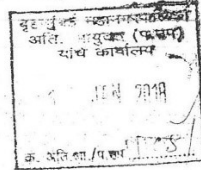 बृहन्मुंबई महानगरपालिका
अति. आयुक्त (प.उप)
यांचे कार्यालय
JAN 2018
क्र. अति.आ./प.उप